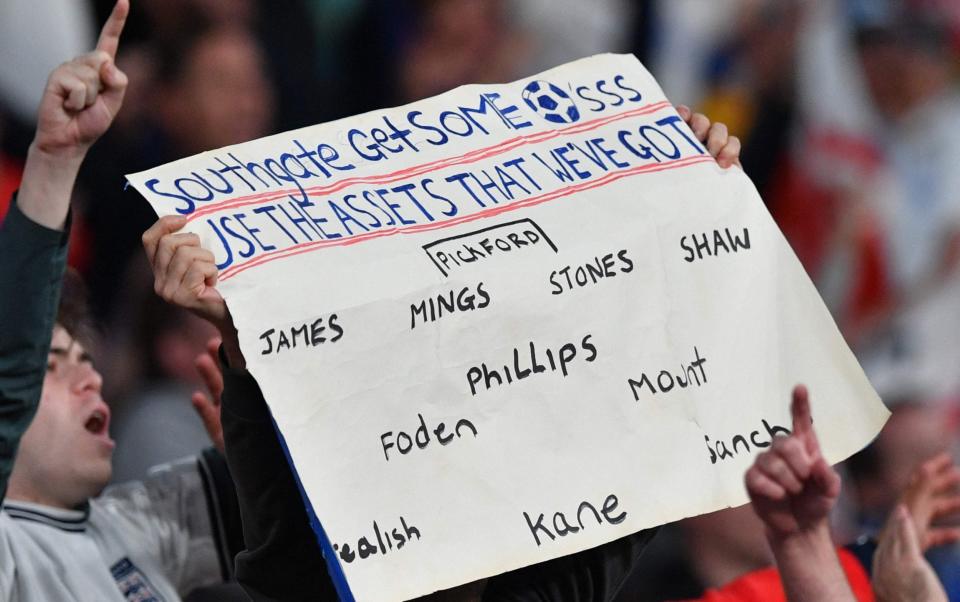 Southgate Get SOME 'SSS
USE THE ASSETS THAT WE'VE GOT
PICKFORD
JAMES MINGS STONES SHAW
PHILLIPS
Foden Mount
ealish Kane Sanch